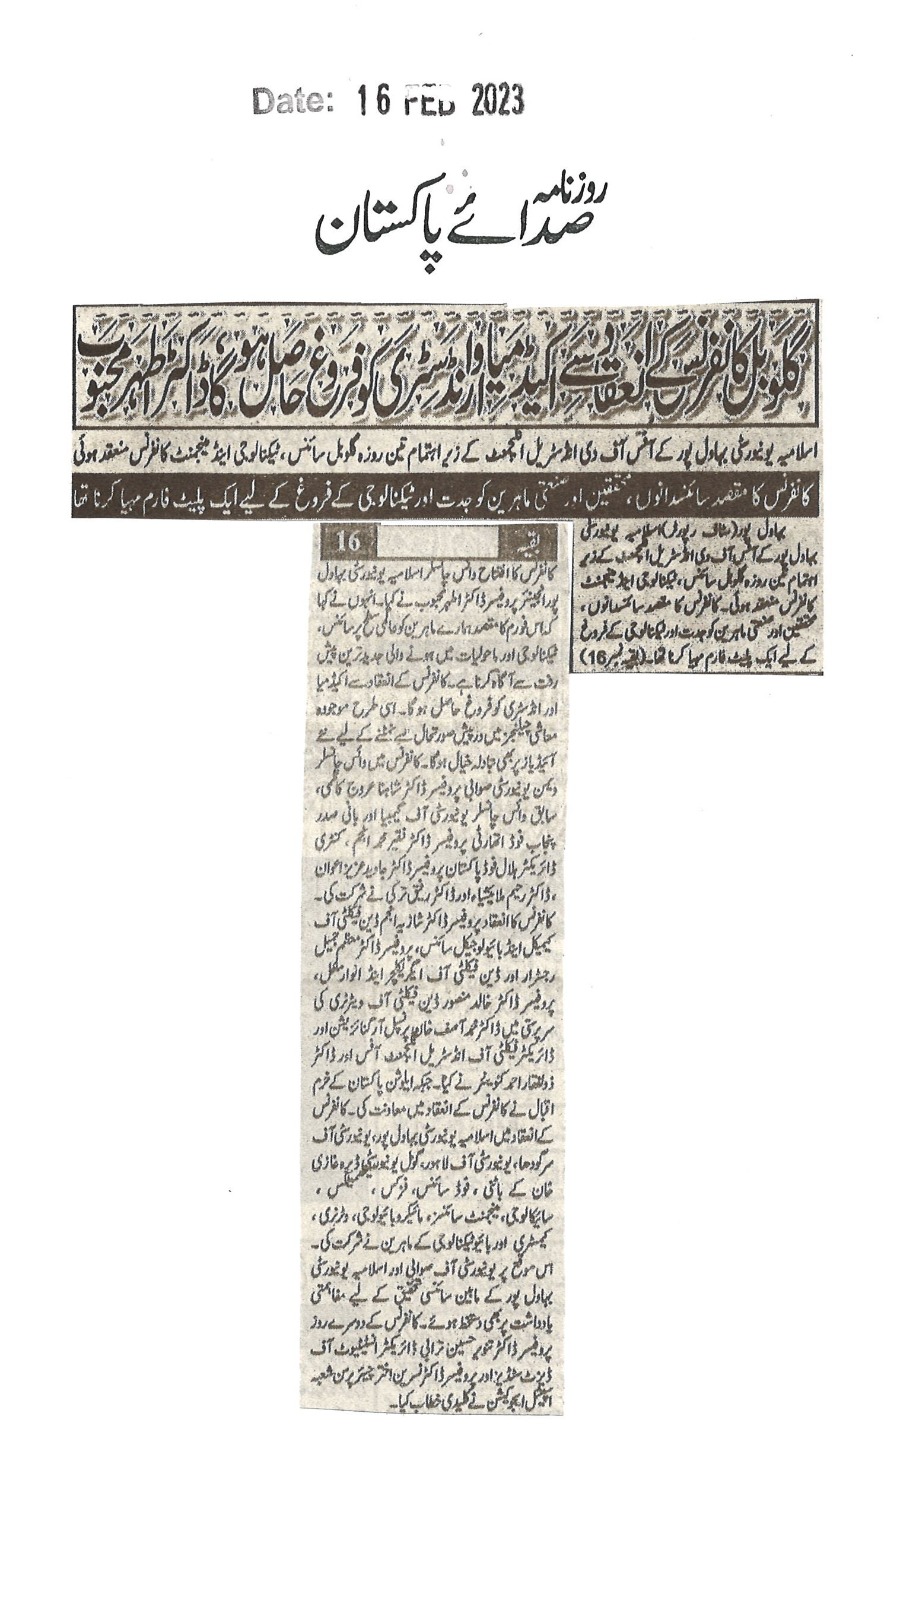 Date: 16 FEB 2023
روزنامہ
صدائے پاکستان
گلوبل کانفرنس کے انعقاد سے اکیڈمیا اور انڈسٹری کو فروغ حاصل ہوگا، ڈاکٹر اطہر محبوب
اسلامیہ یونیورسٹی بہاول پور کے آفس آف دی انڈسٹریل لنکجمنٹ کے زیر اہتمام تین روزہ گلوبل سائنس، ٹیکنالوجی اینڈ مینجمنٹ کانفرنس منعقد ہوئی
کانفرنس کا مقصد سائنسدانوں، محققین اور صنعتی ماہرین کو جدت اور ٹیکنالوجی کے فروغ کے لیے ایک پلیٹ فارم مہیا کرنا تھا
بہاول پور(سٹاف رپورٹر)اسلامیہ یونیورسٹی
بہاول پور کے آفس آف دی انڈسٹریل کے زیر
اہتمام تین روزہ گلوبل سائنس، ٹیکنالوجی اینڈ مینجمنٹ
کانفرنس منعقد ہوئی۔ کانفرنس کا مقصد سائنسدانوں،
محققین اور صنعتی ماہرین کو جدت اور ٹیکنالوجی کے فروغ
کے لیے ایک پلیٹ فارم مہیا کرنا تھا۔ (بقیہ نمبر16)
بقیہ 16
کانفرنس کا افتتاح وائس چانسلر اسلامیہ یونیورسٹی بہاول
پور انجینئر پروفیسر ڈاکٹر اطہر محبوب نے کیا۔ انہوں نے کہا
کہ اس فورم کا مقصد ہمارے ماہرین کو عالمی سطح پر سائنس،
ٹیکنالوجی اور ماحولیات میں ہونے والی جدید ترین پیش
رفت سے آگاہ کرنا ہے۔ کانفرنس کے انعقاد سے اکیڈمیا
اور انڈسٹری کو فروغ حاصل ہو گا۔ اسی طرح موجودہ
معاشی چیلنجز میں درپیش صورتحال سے نمٹنے کے لیے نئے
آئیڈیاز پر بھی تبادلہ خیال ہوگا۔ کانفرنس میں وائس چانسلر
ویمن یونیورسٹی صوابی پروفیسر ڈاکٹر شاہانہ عروج کاظمی،
سابق وائس چانسلر یونیورسٹی آف گیمبیا اور بانی صدر
پنجاب فوڈ اتھارٹی پروفیسر ڈاکٹر فقیر محمد انجم، کنٹری
ڈائریکٹر ہلال فوڈ پاکستان پروفیسر ڈاکٹر جاوید عزیز اعوان
، ڈاکٹر رحیم ملائیشیاء اور ڈاکٹر رفیق ترکی نے شرکت کی۔
کانفرنس کا انعقاد پروفیسر ڈاکٹر شازیہ انجم ڈین فیکلٹی آف
کیمیکل اینڈ بائیولوجیکل سائنس، پروفیسر ڈاکٹر معظم جمیل
رجسٹرار اور ڈین فیکلٹی آف ایگریکلچر اینڈ انوائرمنٹل،
پروفیسر ڈاکٹر خالد منصور ڈین فیکلٹی آف ویٹرنری کی
سرپرستی میں ڈاکٹر محمد آصف خان پرنسپل آرگنائزیشن اور
ڈائریکٹر فیکلٹی آف انڈسٹریل آفس اور ڈاکٹر
ذوالفقار احمد کنوینئر نے کیا۔ جبکہ ایلوشن پاکستان کے خرم
اقبال نے کانفرنس کے انعقاد میں معاونت کی۔ کانفرنس
کے انعقاد میں اسلامیہ یونیورسٹی بہاول پور، یونیورسٹی آف
سرگودھا، یونیورسٹی آف لاہور، گومل یونیورسٹی ڈیرہ غازی
خان کے باٹنی، فوڈ سائنس، فزکس،
سائیکالوجی، مینجمنٹ سائنسز، مائیکرو بائیولوجی، ویٹرنری،
کیمسٹری اور بائیو ٹیکنالوجی کے ماہرین نے شرکت کی۔
اس موقع پر یونیورسٹی آف صوابی اور اسلامیہ یونیورسٹی
بہاول پور کے مابین سائنسی تحقیق کے لیے مفاہمتی
یادداشت پر بھی دستخط ہوئے۔ کانفرنس کے دوسرے روز
پروفیسر ڈاکٹر تنویر حسین ترابی ڈائریکٹر انسٹیٹیوٹ آف
ڈیزرٹ سٹڈیز اور پروفیسر ڈاکٹر نسرین اختر چیئر پرسن شعبہ
اسپیشل ایجوکیشن نے کلیدی خطاب کیا۔